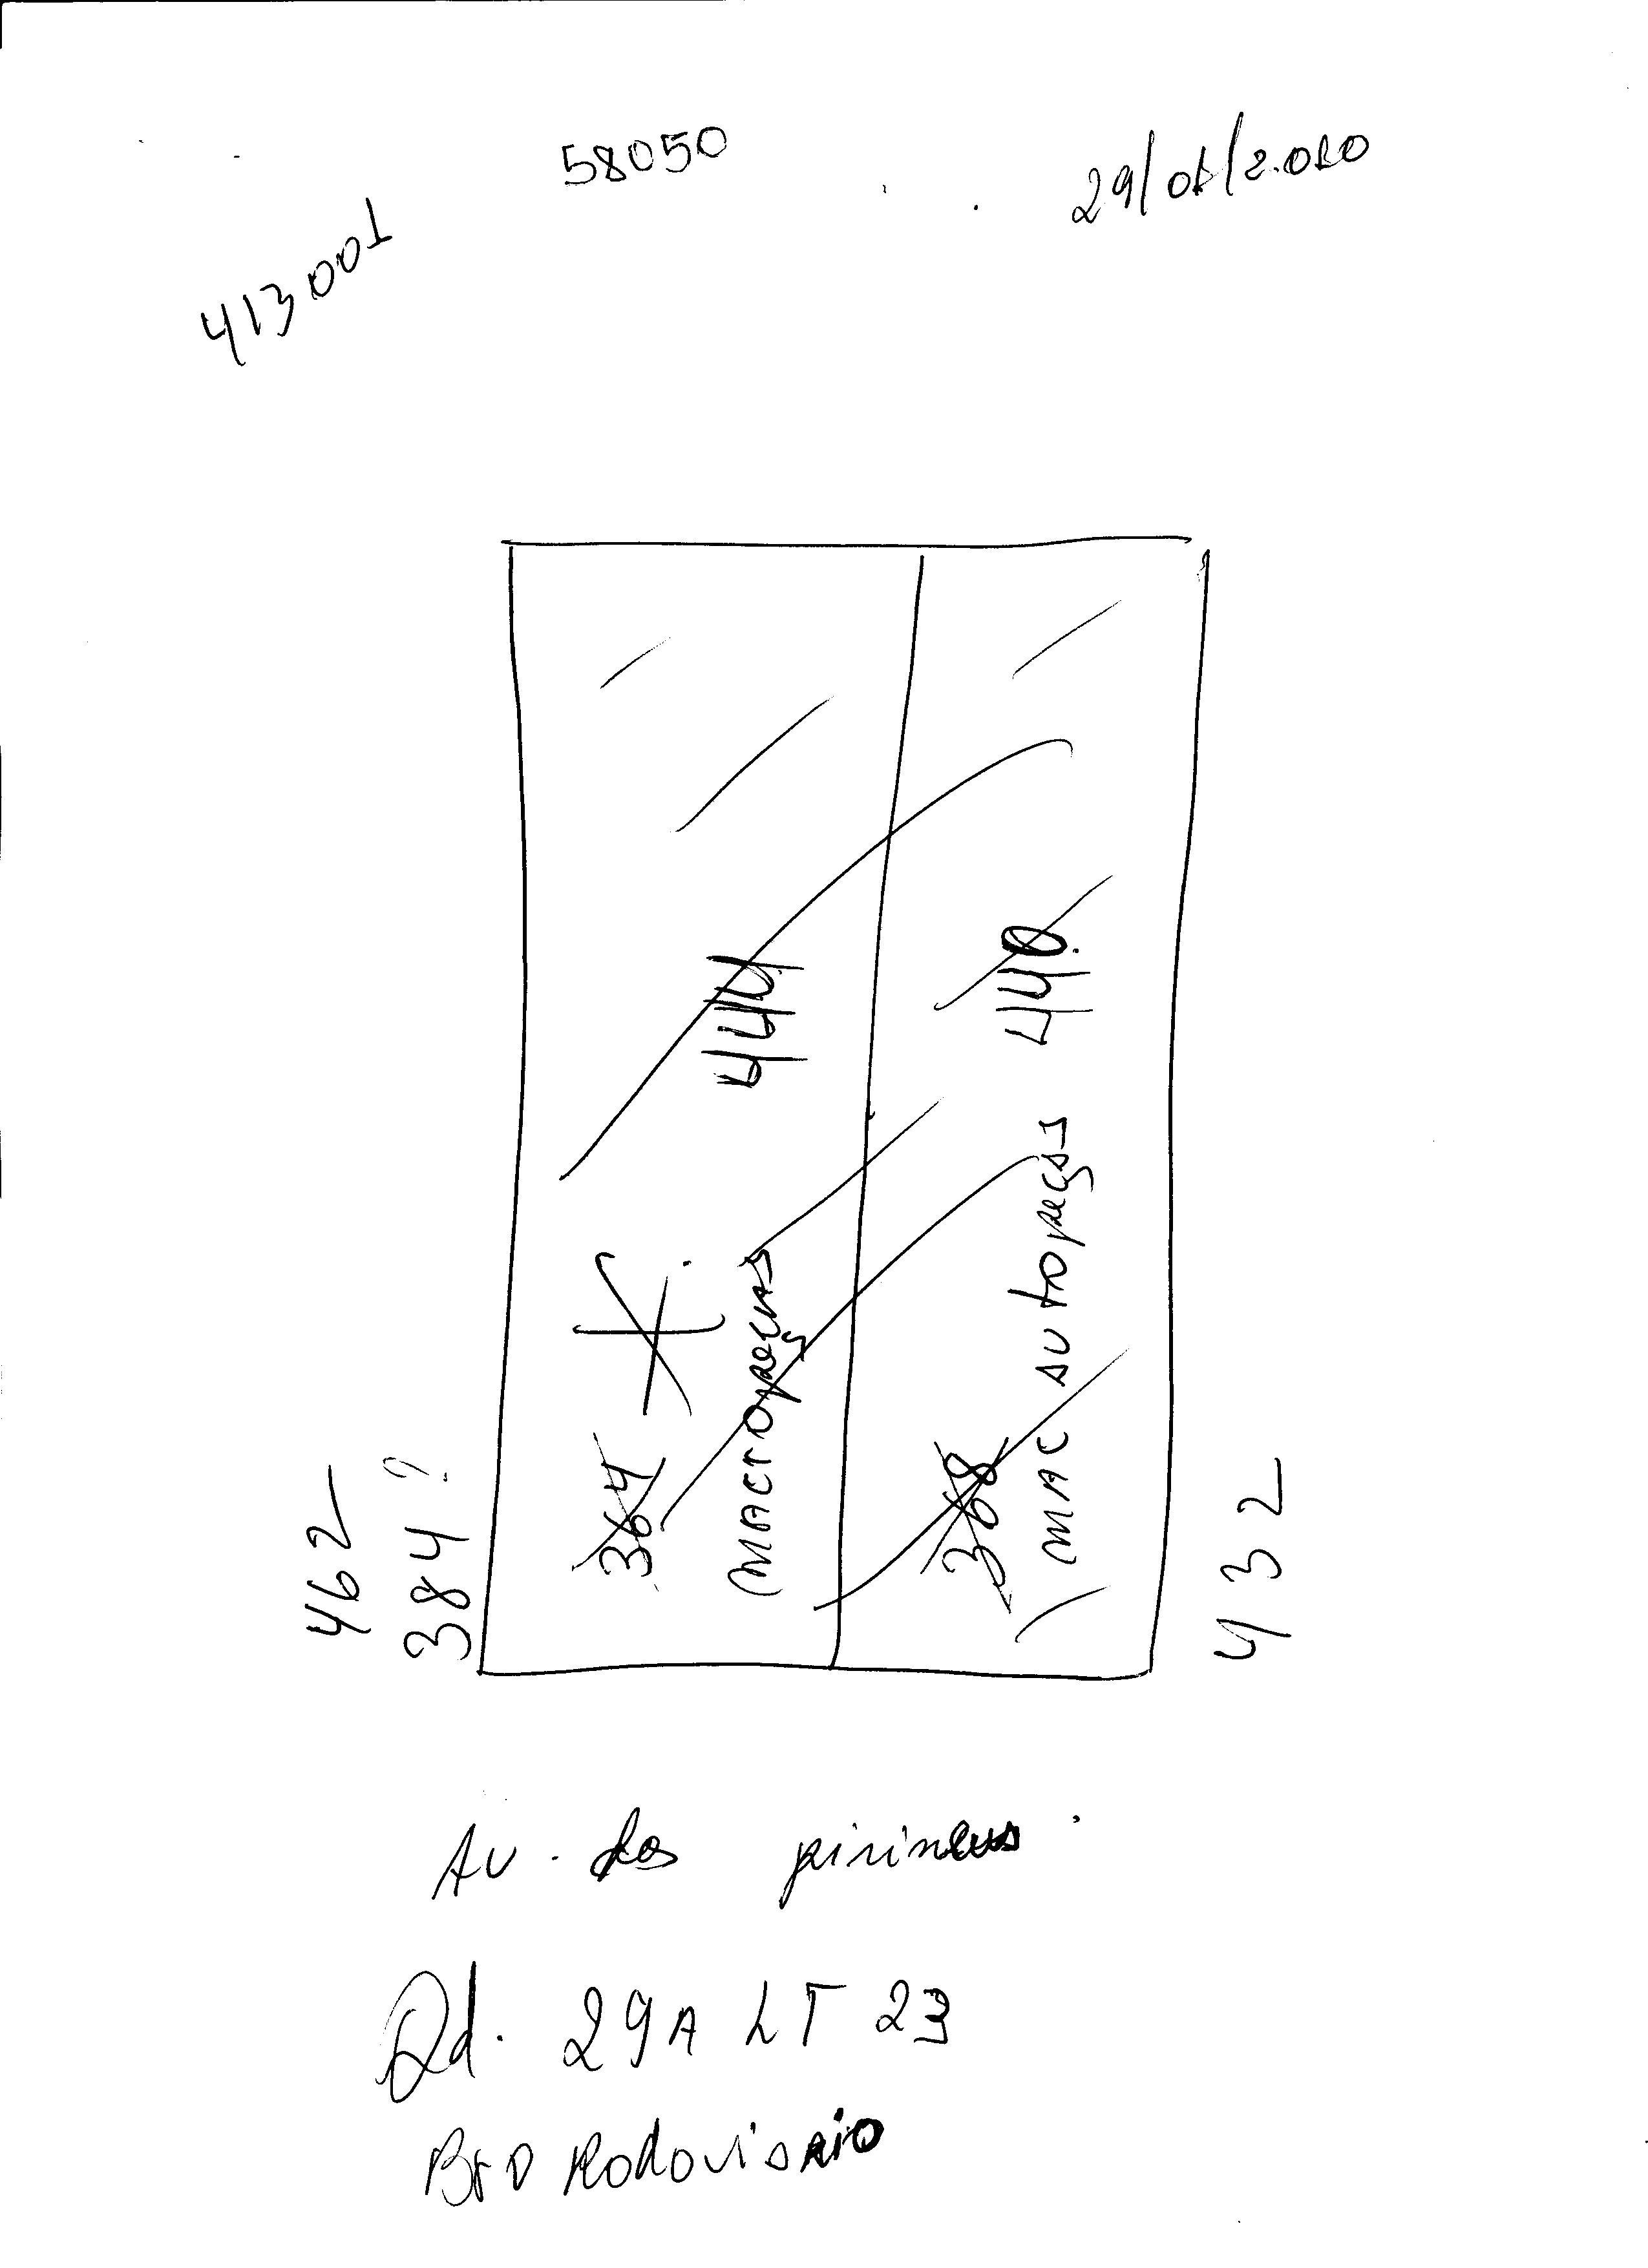 58050
29/01/2.010
413001
444
440
364
Macropeças
368
MAC Autopeças
462
384 ?
432
Av. dos pirineus
Qd. 29A LT 23
BRO Rodoviario